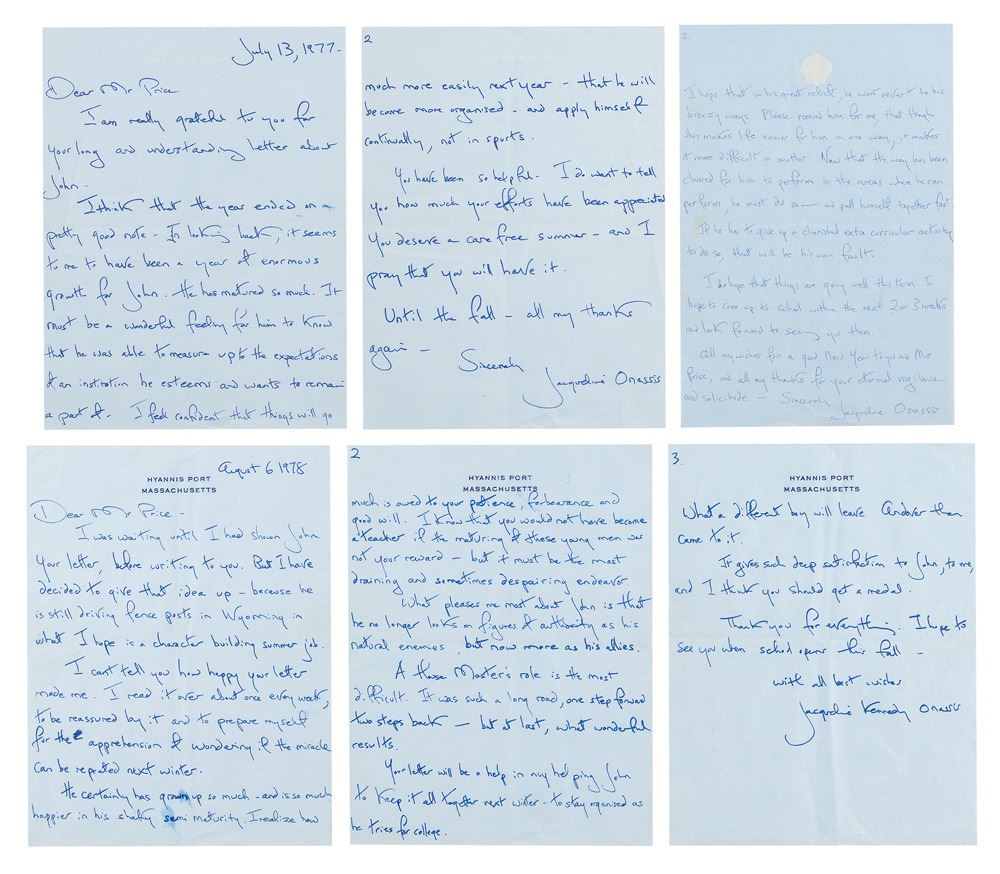 July 13, 1977-
Dear Mr Price
I am really grateful to you for
your long and understanding letter about
John.
I think that the year ended on a
pretty good note - In looking back, it seems
to me to have been a year of enormous
growth for John. He has matured so much. It
must be a wonderful feeling for him to know
that he was able to measure up to the expectations
of an institution he esteems and wants to remain
a part of. I feel confident that things will go
2
much more easily next year - that he will
become more organised - and apply himself
continually, not in spurts.
You have been so helpful - I do want to tell
you how much your efforts have been appreciated
You deserve a care free summer - and I
pray that you will have it.
Until the fall - all my thanks
again -
Sincerely
Jacqueline Onassis
2
I hope that in his great relief, he wont revert to his
breezy ways. Please remind him for me, that though
this makes life easier for him in one way, it makes
it more difficult in another. Now that the way has been
cleared for him to perform in the areas where he can
perform, he must do so — and pull himself together fast.
If he has to give up a cherished extra curricular activity
to do so, that will be his own fault.
I do hope that things are going well this term. I
hope to come up to school within the next 2 or 3 weeks
and look forward to seeing you then.
All my wishes for a good New Year to you and Mrs
Price, and all my thanks for your eternal vigilance
and solicitude - Sincerely
Jacqueline Onassis
August 6 1978
HYANNIS PORT
MASSACHUSETTS
Dear Mr Price -
I was waiting until I had shown John
your letter, before writing to you. But I have
decided to give that idea up - because he
is still driving fence posts in Wyoming in
what I hope is a character building summer job.
I cant tell you how happy your letter
made me. I read it over about once every week,
to be reassured by it and to prepare myself
for the apprehension of wondering if the miracle
can be repeated next winter.
He certainly has grown up so much - and is so much
happier in his shaky semi maturity. I realize how
2
HYANNIS PORT
MASSACHUSETTS
much is owed to your patience, forbearance and
good will. I know that you would not have become
a teacher if the maturing of these young men was
not your reward - but it must be the most
draining and sometimes despairing endeavor
What pleases me most about John is that
he no longer looks on figures of authority as his
natural enemies, but now more as his allies.
A House Master's role is the most
difficult. It was such a long road, one step forward
two steps back — but at last, what wonderful
results.
Your letter will be a help in my helping John
to keep it all together next winter - to stay organised as
he tries for college.
3.
HYANNIS PORT
MASSACHUSETTS
What a different boy will leave Andover than
came to it.
It gives such deep satisfaction to John, to me,
and I think you should get a medal.
Thank you for everything. I hope to
see you when school opens this fall -
with all best wishes
Jacqueline Kennedy Onassis